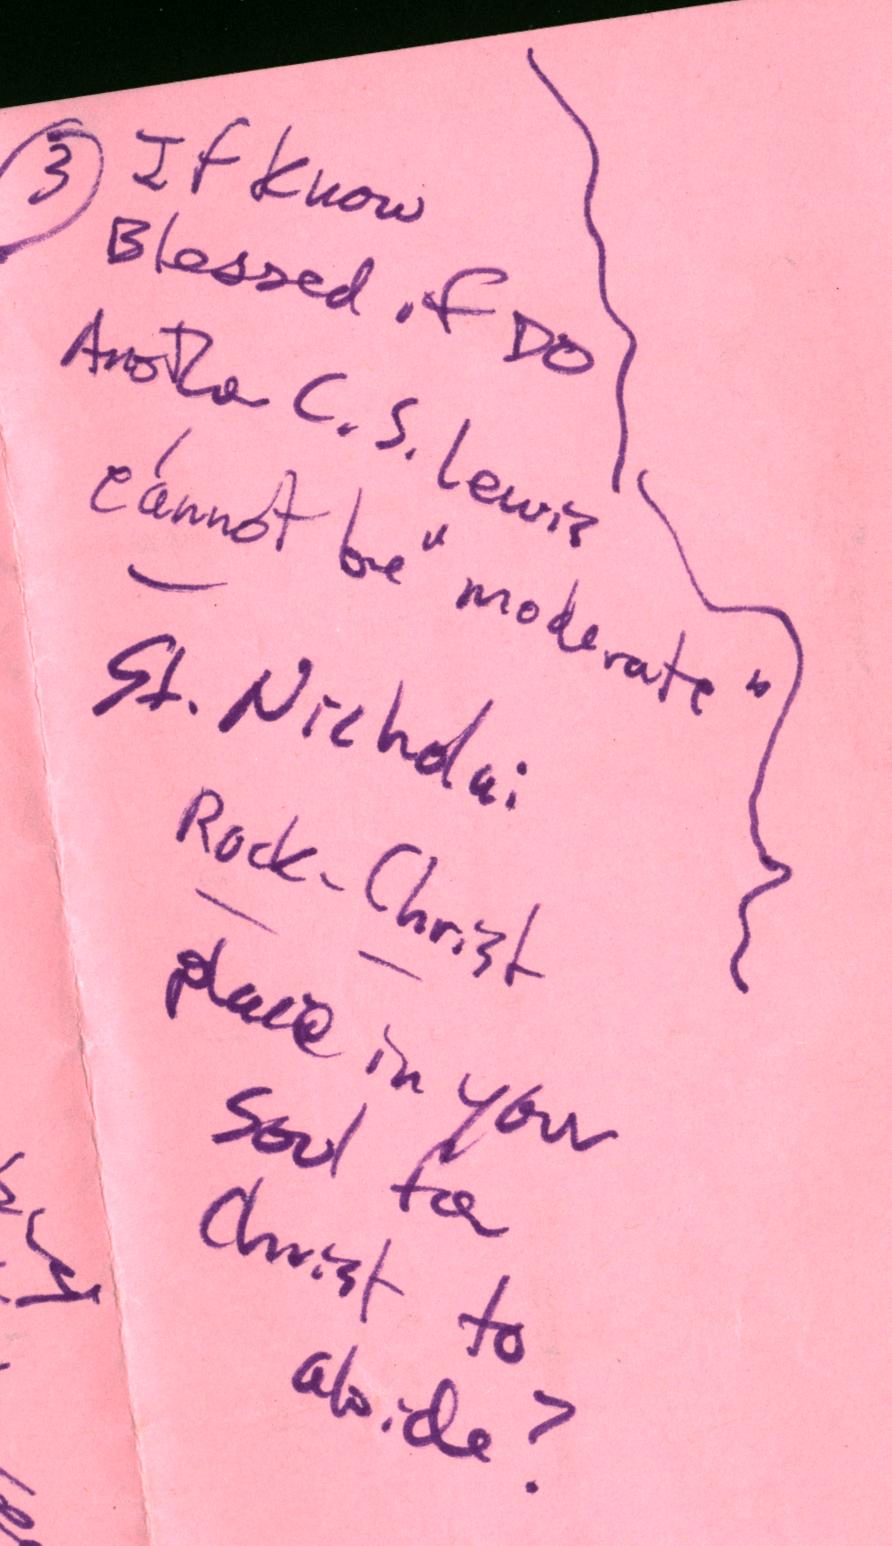 ③ If know
Blessed if DO
Another C.S. Lewis
cannot be "moderate"
St. Nicholai
Rock - Christ
place in your
soul for
Christ to
abide?